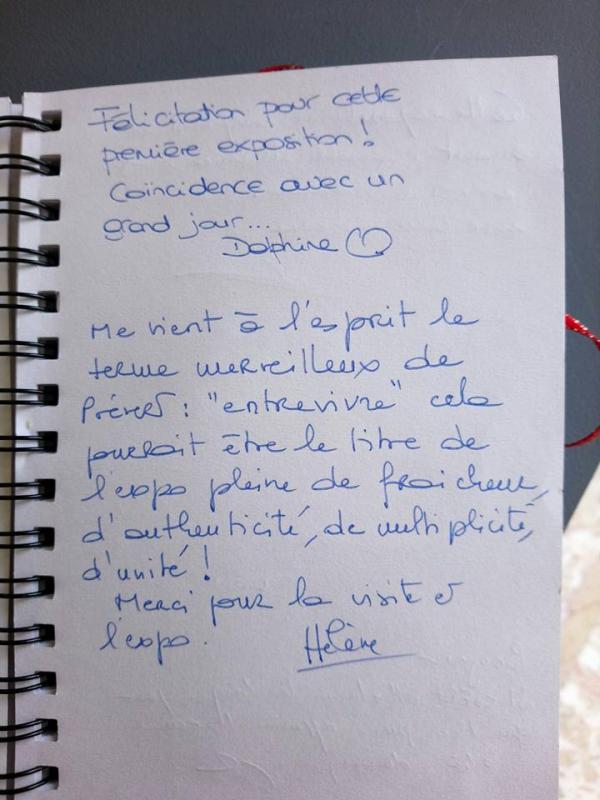 Félicitation pour cette
première exposition !
Coïncidence avec un
grand jour...
Dolphine
Me vient à l'esprit le
terme merveilleux de
Prévert : "entrevivre" cela
pourrait être le titre de
l'expo pleine de fraicheur,
d'authenticité, de multiplicité,
d'unité !
Merci pour la visite et
l'expo.
Hélène